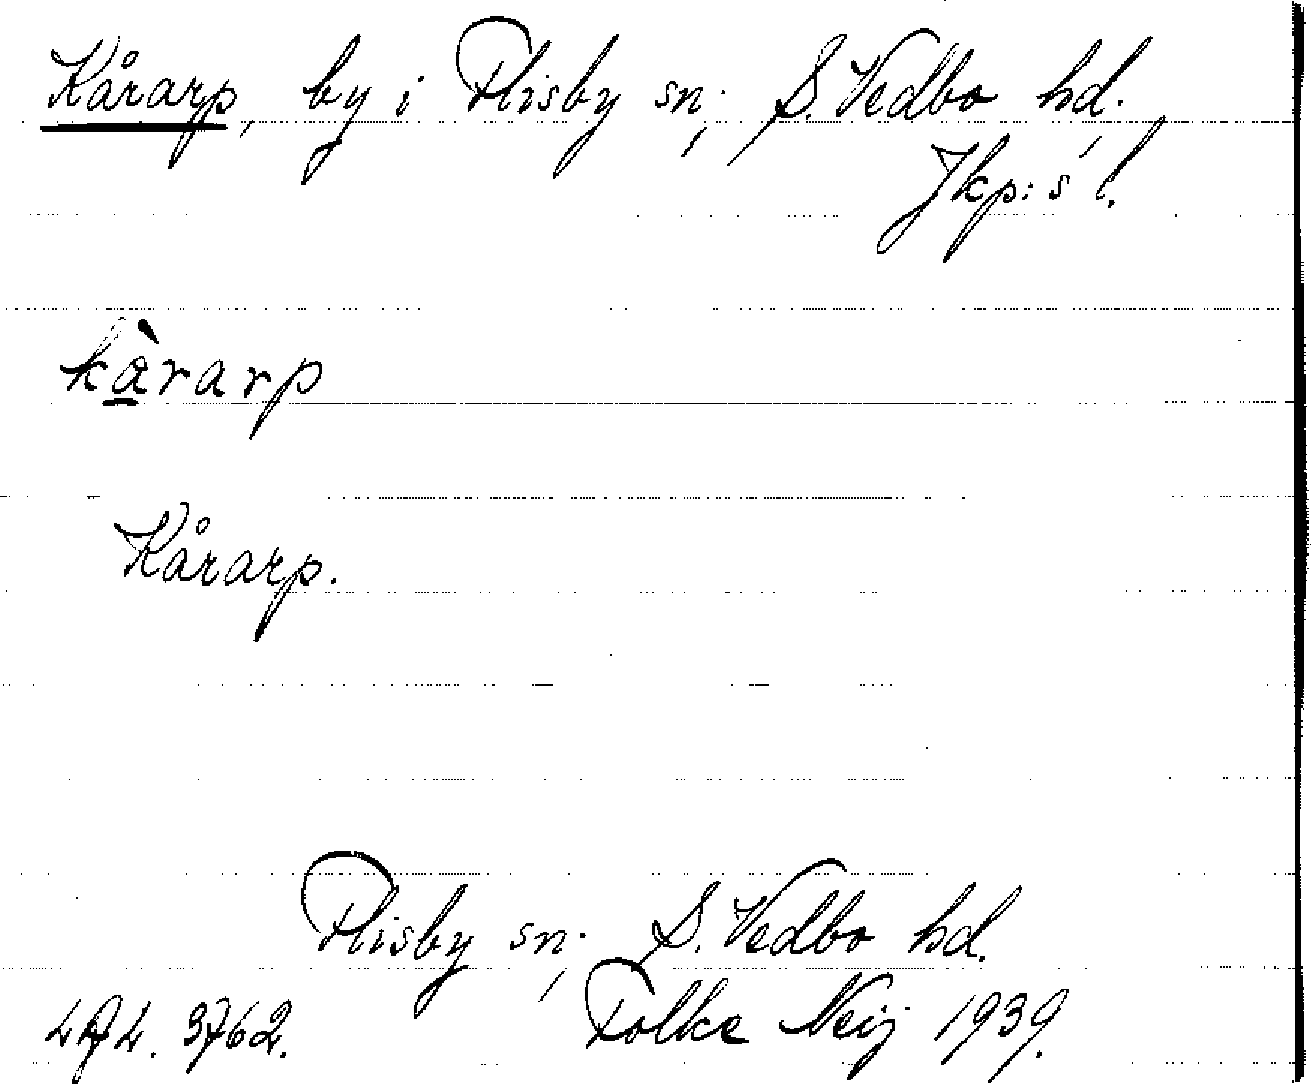 Kårarp, by i Flisby sn, S. Vedbo hd,
Jkp:s l.
kàrarp
Kårarp.
Flisby sn, S. Vedbo hd.
3762. Folke Neij 1939.